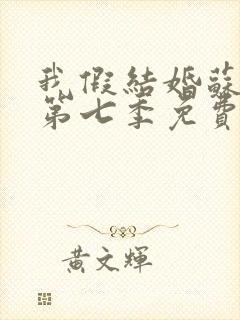 我假結婚蘇
第七季免費
黃文輝